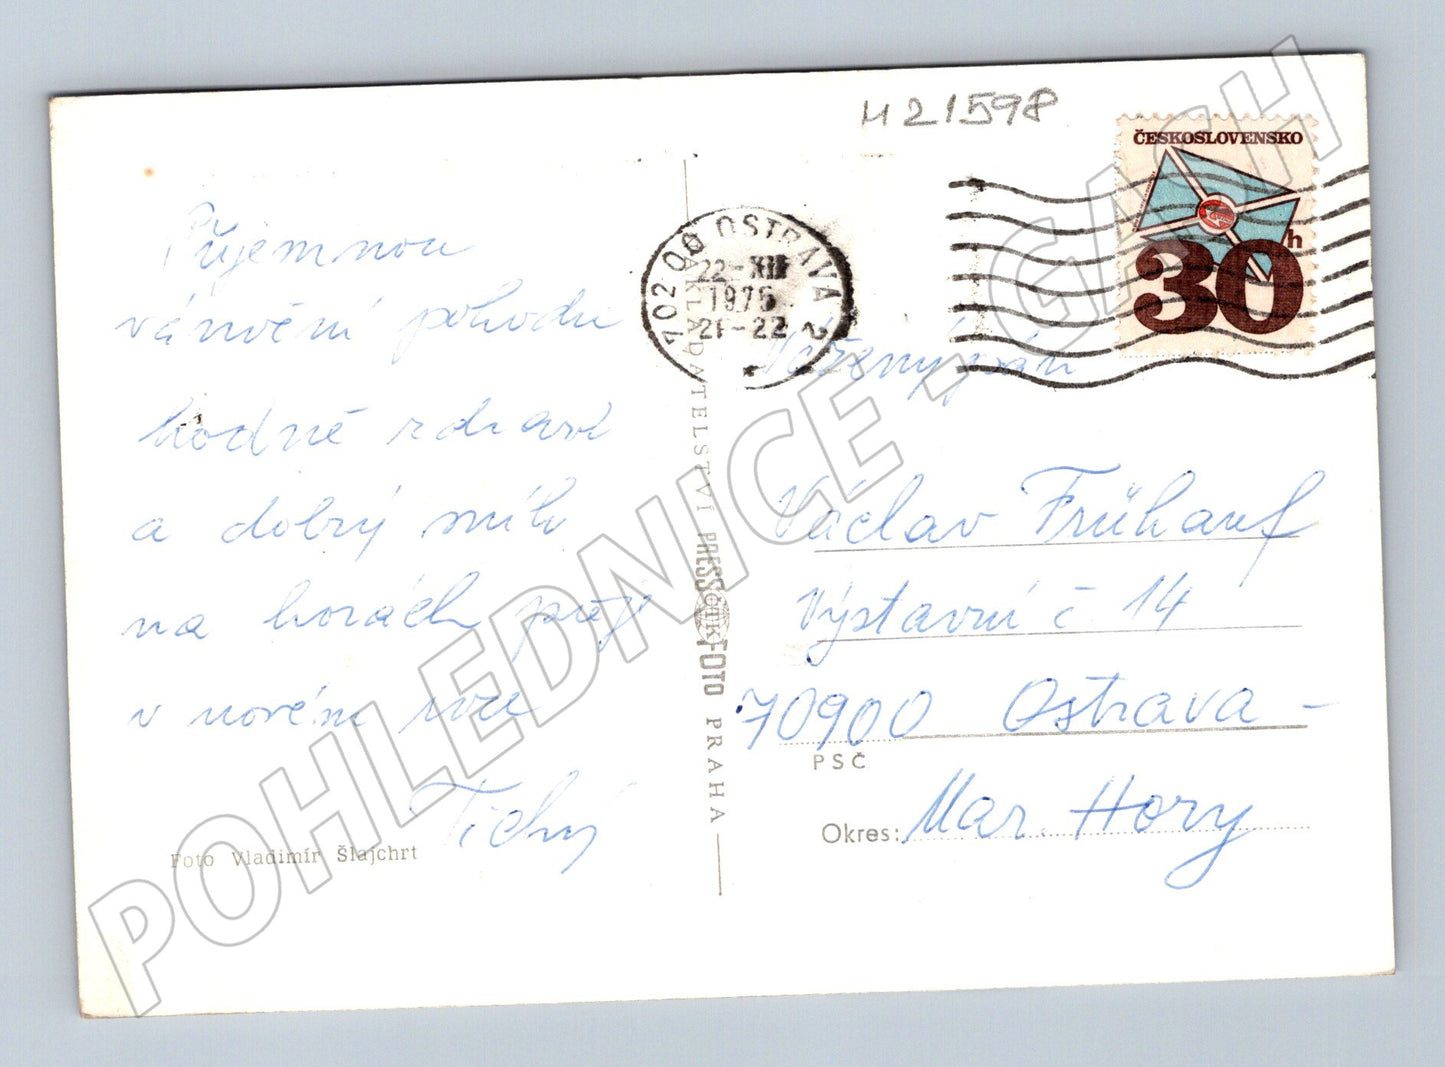 M21598
ČESKOSLOVENSKO
30
h
702 00 OSTRAVA 2
22-XII
1975
21-22
Příjemnou
vánoční pohodu
hodně zdraví
a dobrý sníh
na horách přeje
v novém roce
Tichý
Foto Vladimír Šlajchrt
NAKLADATELSTVÍ PRESSFOTO PRAHA
ČTK
Vážený pán
Václav Frühauf
Výstavní č 14
70900 Ostrava -
PSČ
Okres: Mar. Hory
POHLEDNICE - GASH